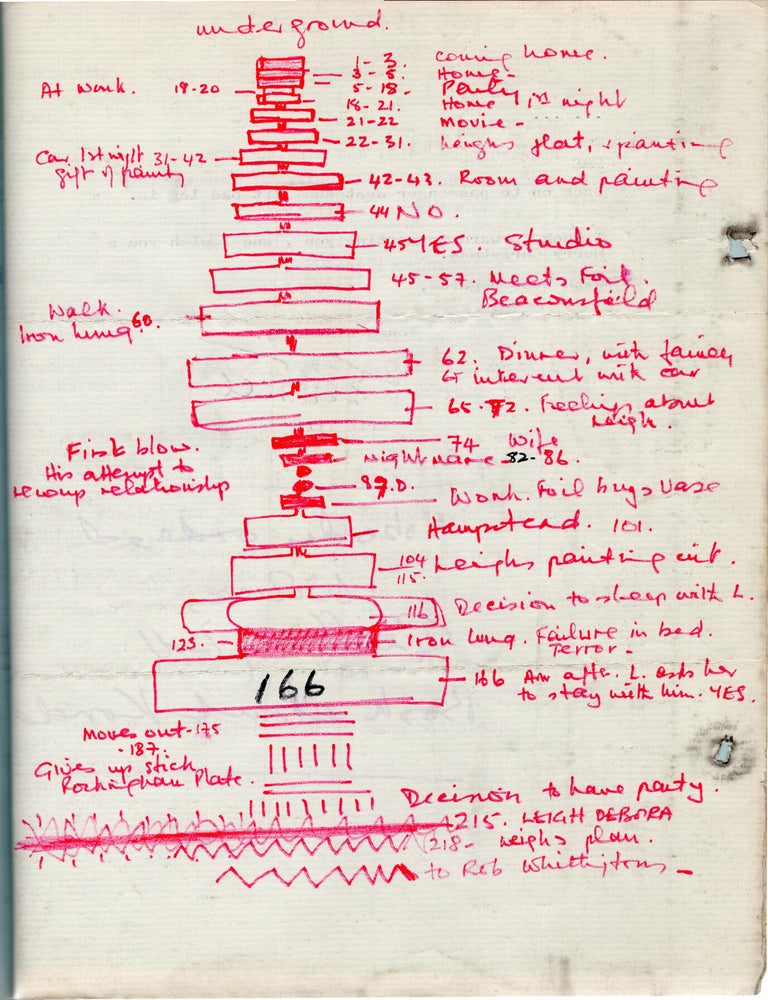 underground.
1-3 coming home.
3-5 Home-
At work. 18-20 5-18- Party
18-21. Home 1st night
21-22 movie-
22-31. Leighs flat, & painting
Car 1st night 31-42
gift of painting
42-43. Room and painting
44 NO.
45 YES Studio
45-57. Meets Foil.
Beaconsfield
Walk.
Iron Lung 60.
62. Dinner, with family
65 interent with car
65-72. Feelings about
Leigh.
First blow. 74 Wife
His attempt to Nightmare 82-86.
recoup relationship 87.D. Work. Foil buys Vase
Hampstead. 101.
104 Leighs painting cut.
115.
116 Decision to sleep with L.
123. Iron Lung. Failure in bed.
Terror-
166 166 Am after. L. asks her
to stay with him. YES.
Moves out-175
-187.
Gives up stick
Rockingham Plate.
Decision to have party.
215. LEIGH DEBORA
218- Leighs plan.
to Rob Whittingtons-